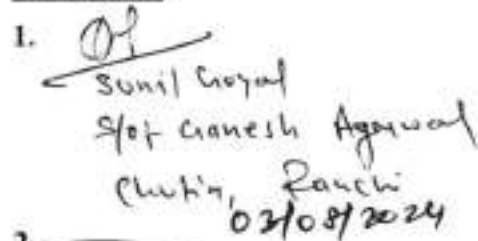 1.
Sunil Goyal
S/of Ganesh Agarwal
Chutia, Ranchi
02/08/2024
2.